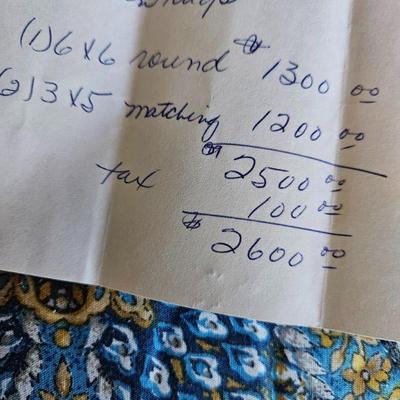 (1) 6 x 6 round $ 1300 00
(2) 3 x 5 matching 1200 00
$ 2500 00
tax 100 00
$ 2600 00